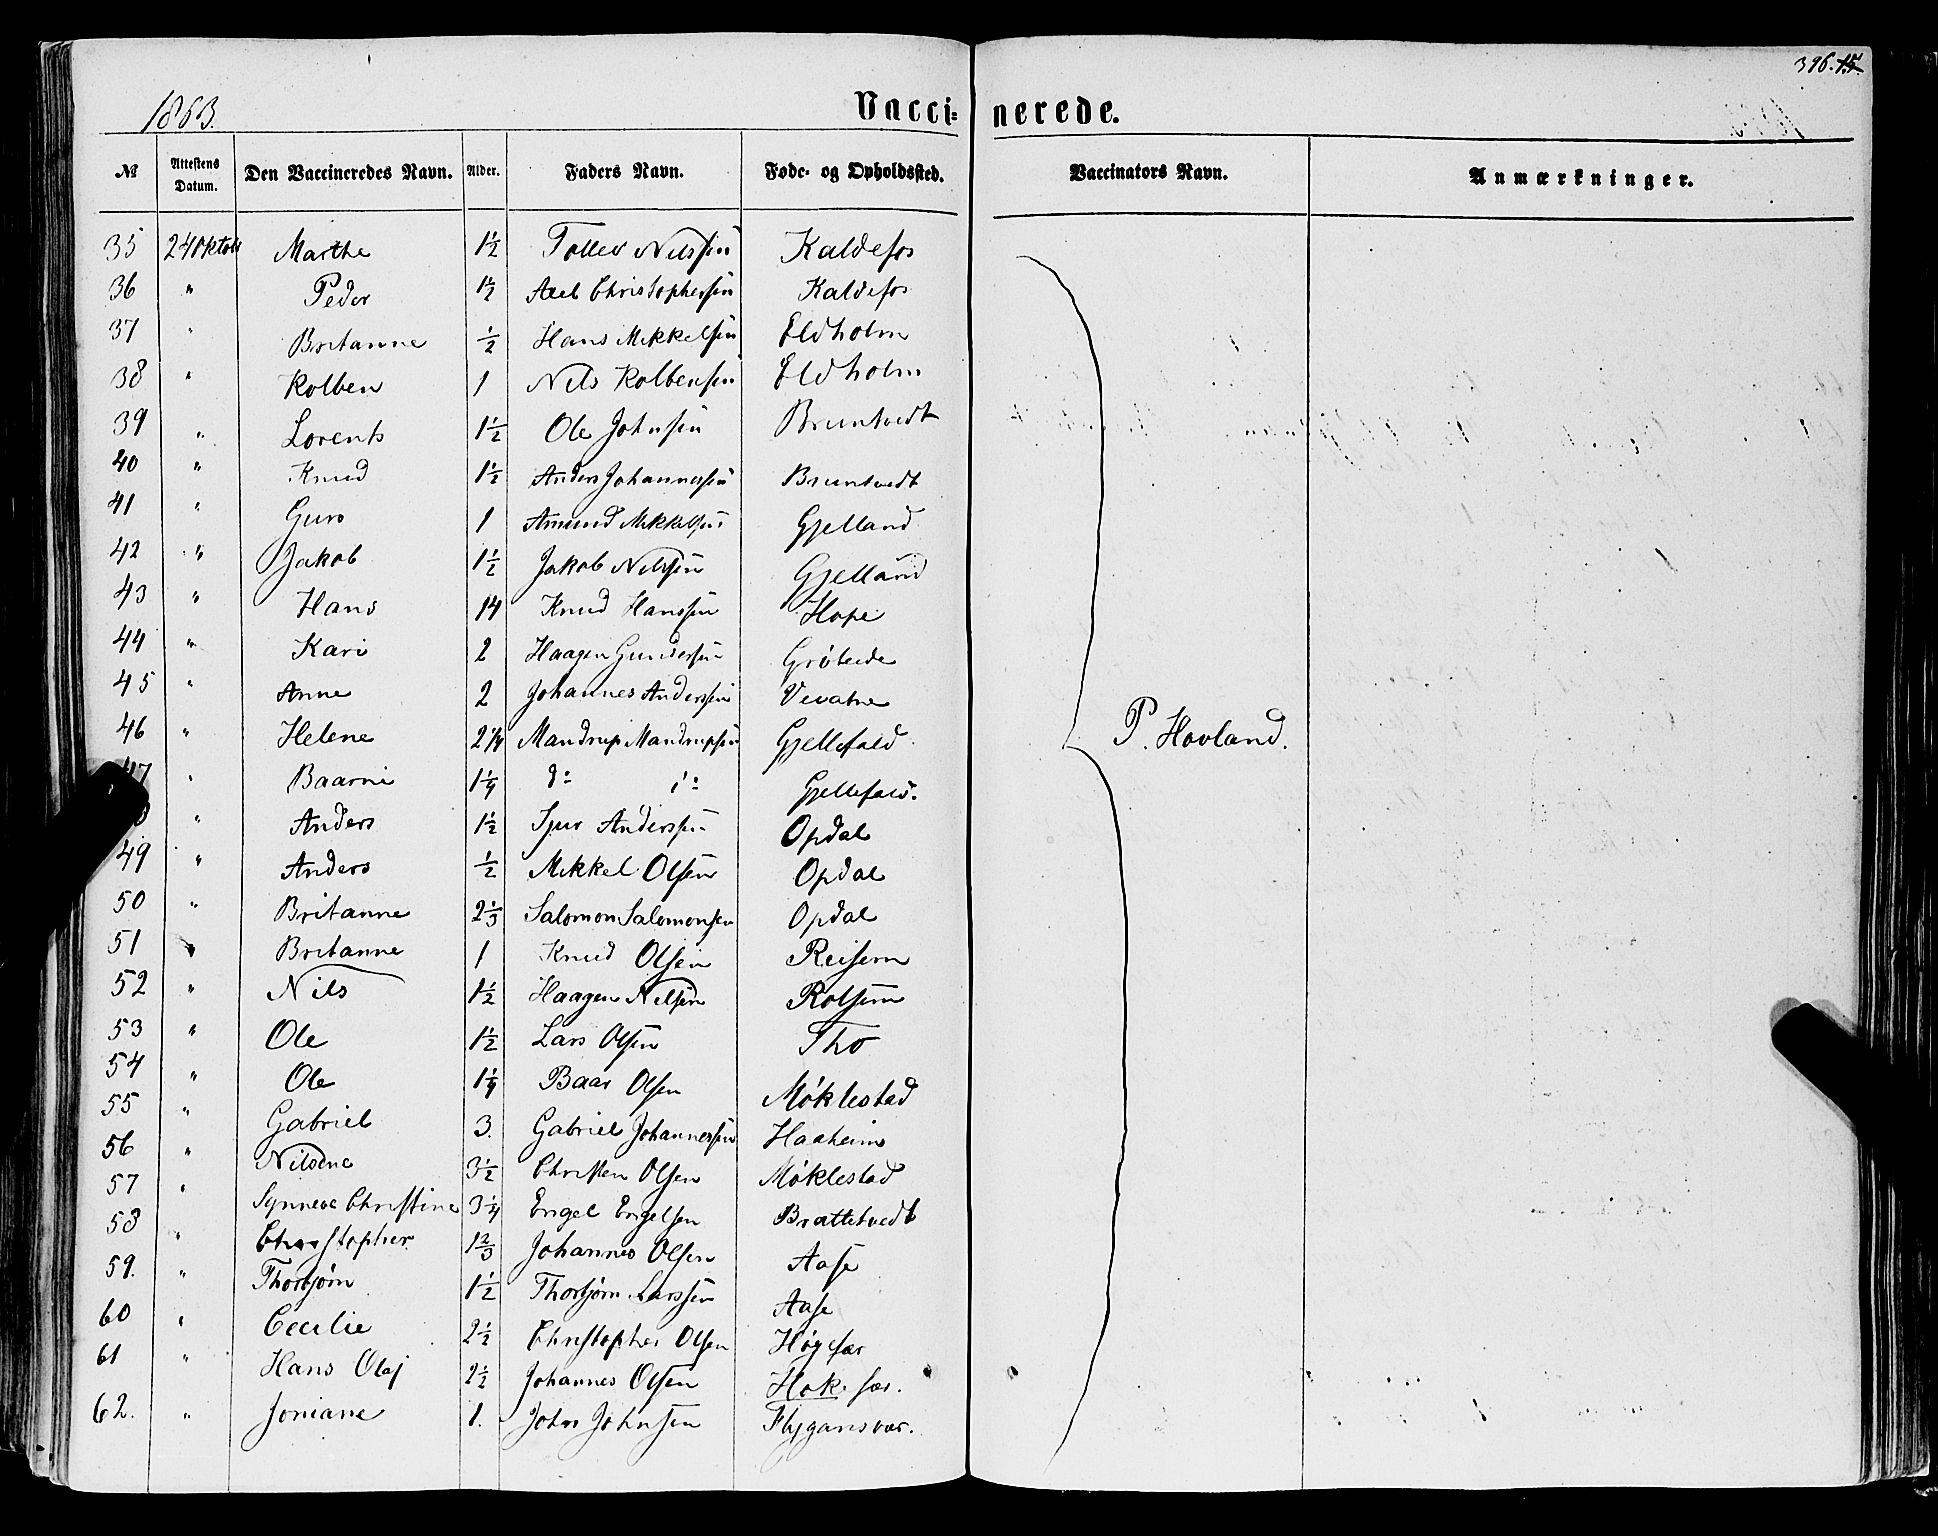 396. 15.
1863.
Vaccinerede.
№ Attestens Datum. Den Vaccineredes Navn. Alder. Faders Navn. Føde- og Opholdssted. Vaccinators Navn. Anmærkninger.
35 24 Oktob Marthe 1½ Tollev Nilssøn Kaldefos
36 " Peder 1½ Axel Christophersen Kaldefos
37 " Britanne ½ Hans Mikkelsen Eldholm
38 " Kolben 1 Nils Kolbensen Eldholm
39 " Lorents 1½ Ole Johnsen Bruntvedt
40 " Knud 1½ Anders Johannessen Bruntvedt
41 " Guro 1 Amund Mikkelsen Gjelland
42 " Jakob 1½ Jakob Nilssen Gjelland
43 " Hans 14 Knud Hanssen Hope
44 " Kari 2 Haagen Gundersen
45 " Anne 2 Johannes Anderssen Vevatne
46 " Helene 2¼ Mandrup Mandrupsen Gjellefald
P. Hovland.
47 " Baarni 1¼ d: d: Gjellefald.
" Anders 1½ Sjur Anderssen Opdal
49 " Anders ½ Mikkel Olsen Opdal
50 " Britanne 2⅓ Salomon Salomonsen Opdal
51 " Britanne 1 Knud Olsen
52 " Nils 1½ Haagen Nilsen
53 " Ole 1½ Lars Olsen Tho
54 " Ole 1¼ Baar Olsen Møklestad
55 " Gabriel 3. Gabriel Johannessen Haaheim
56 " Nilsine 3½ Christen Olsen Møklestad
57 " Synneve Christine 3¼ Engel Engelsen Brattetvedt
58 " Christopher 1⅔ Johannes Olsen Aase
59. " Thorbjørn 1½ Thorbjørn Larssen Aase
60 " Cecilie 2½ Christopher Olsen
61 " Hans Olaj 2½ Johannes Olsen
62. " Joniane 1. John Johnsen Flygansvær.